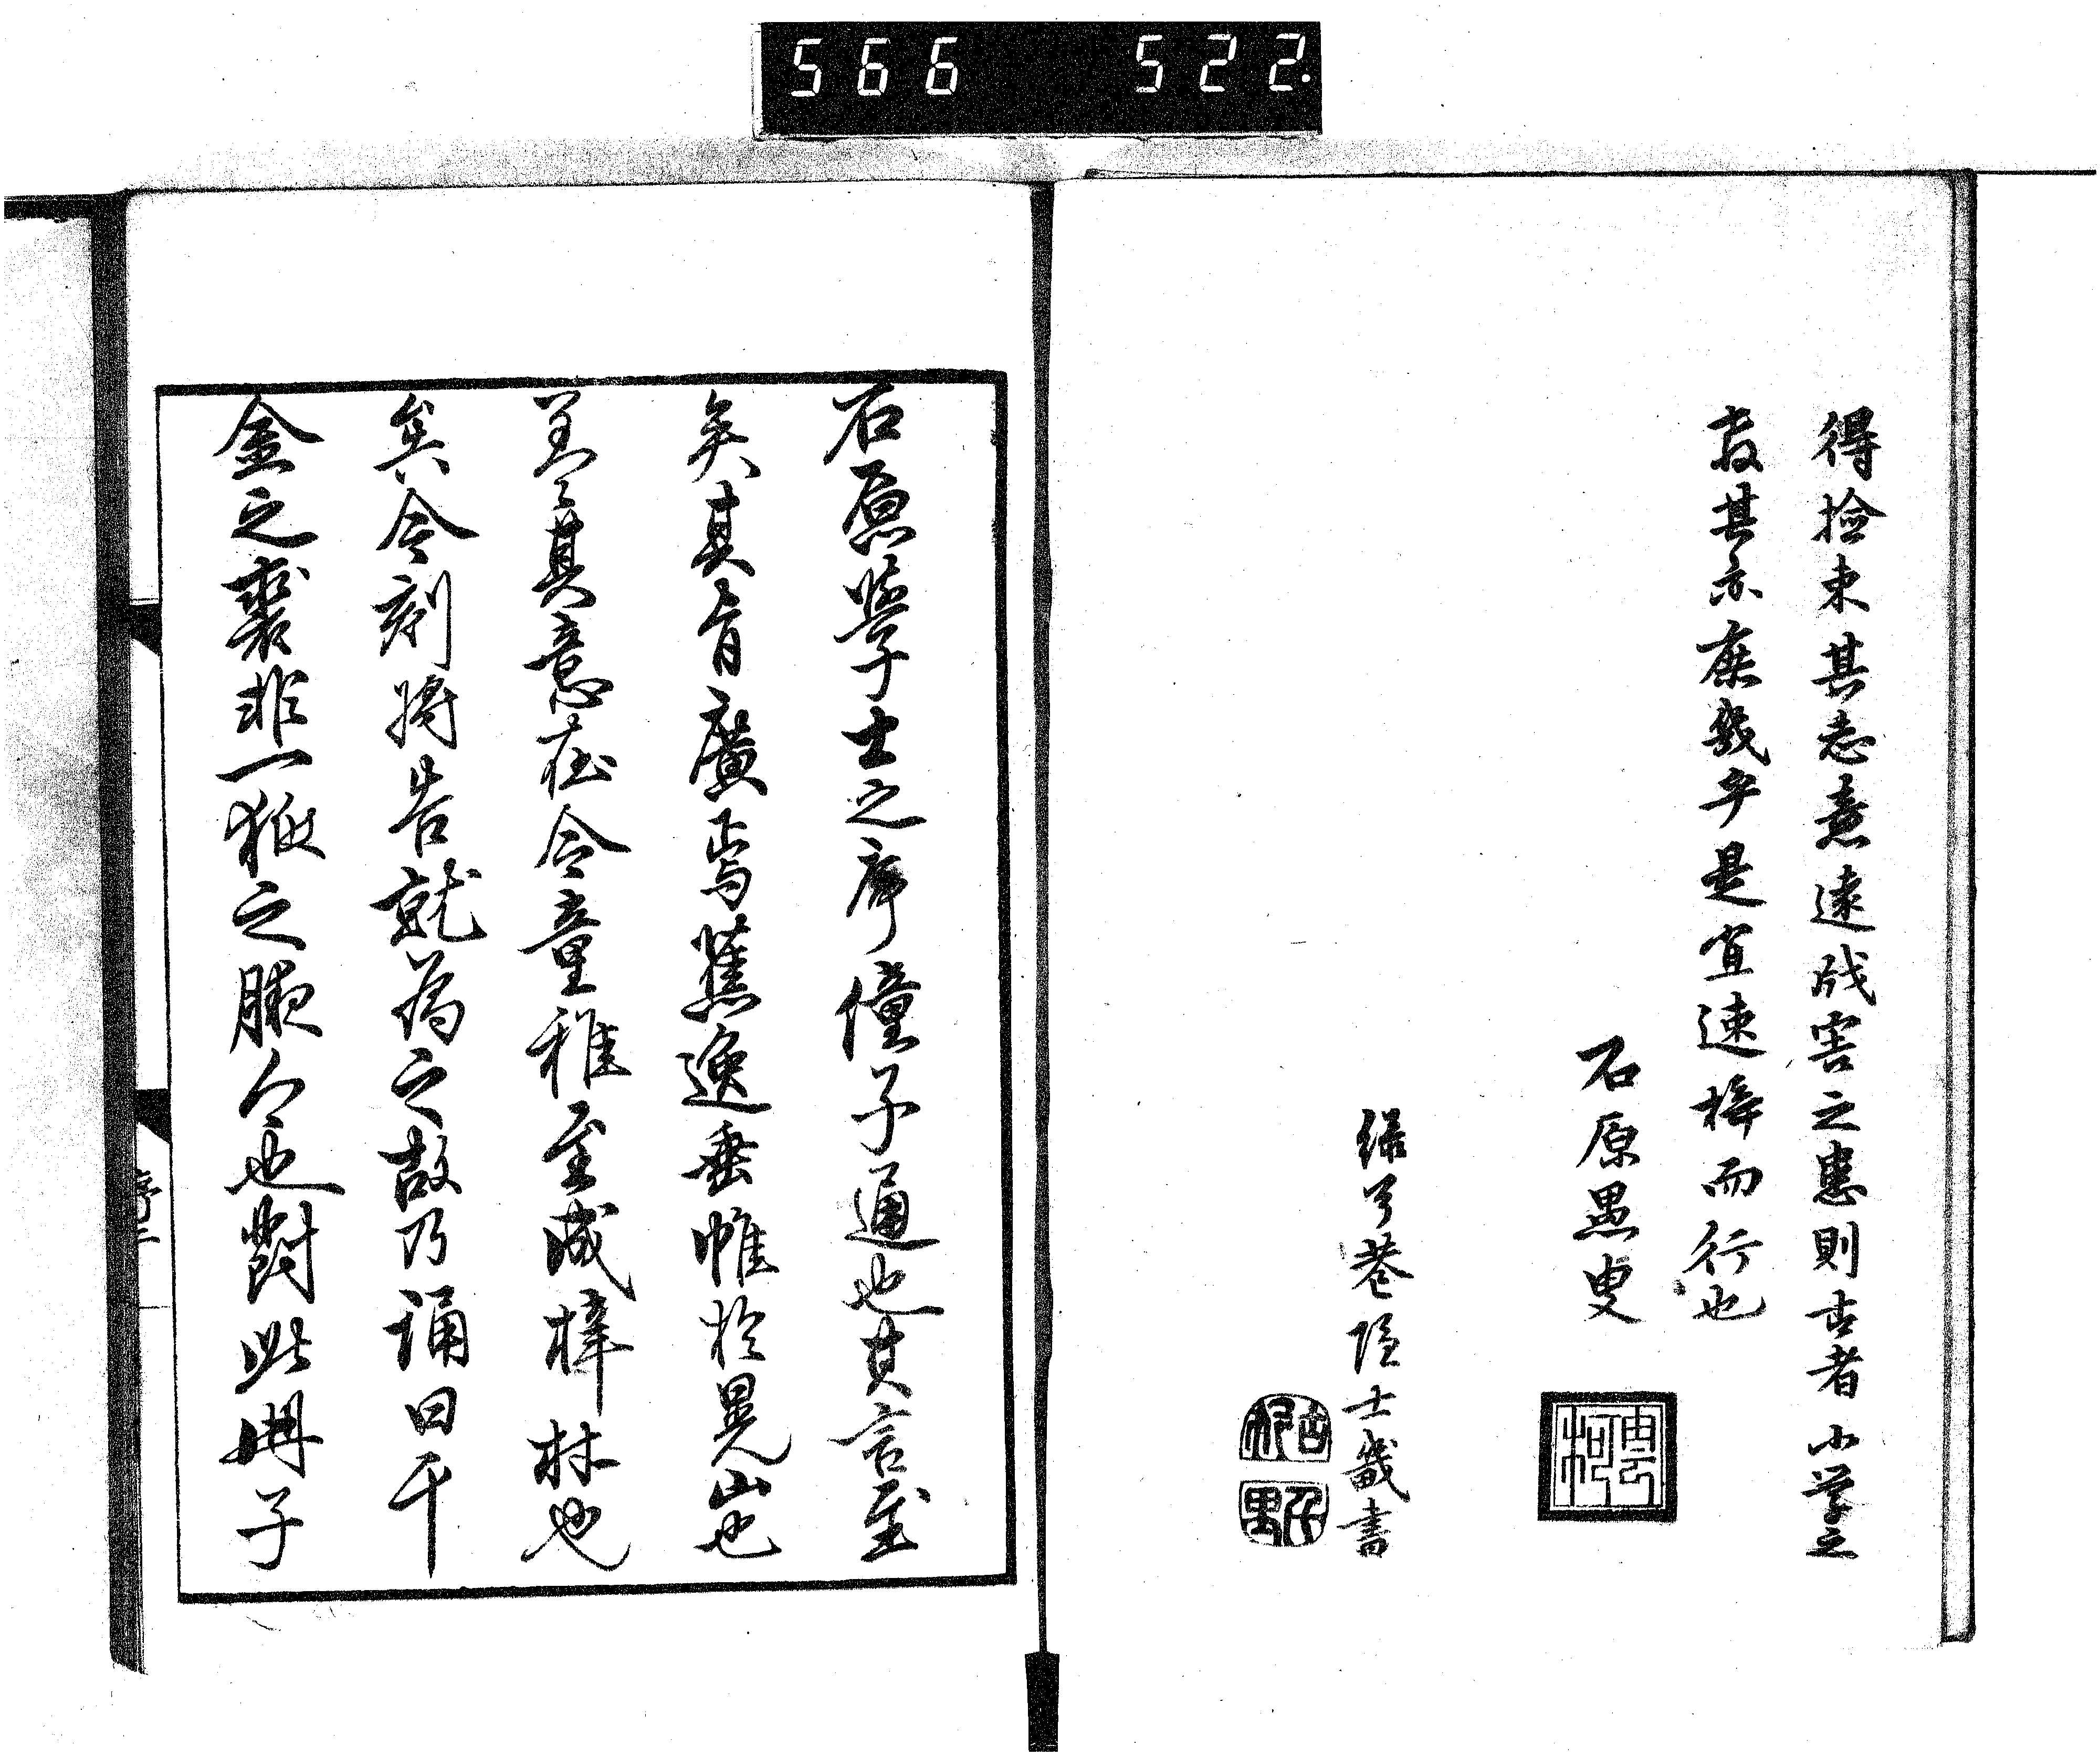 566 522.
得撿束其志意遠戕害之患則古者小学之
教其亦庶幾乎是宜速梓而行也
石原愚叟
巷隠士畿書
石原學士之序僮子通也其言至
矣其旨廣焉蕉逸垂帷於晃山也
羊〻其意在令童稚至成梓材也
矣令剞將告就為之故乃誦曰千
金之裘非一狐之腋今也對此冊子
序三